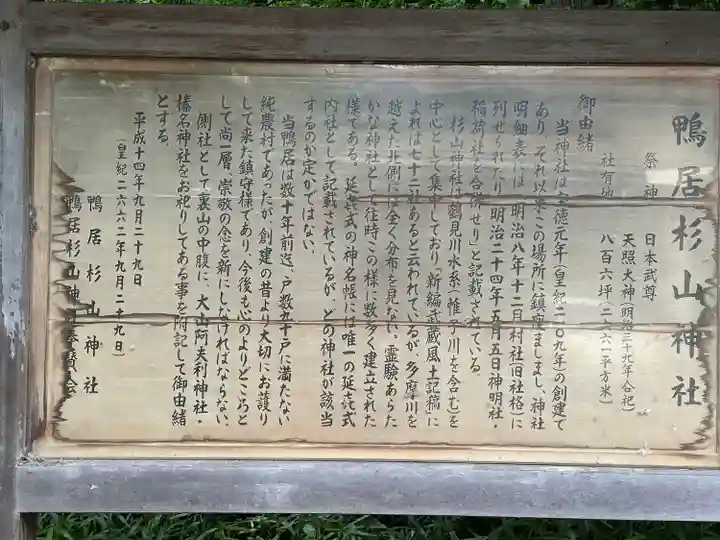 鴨居杉山神社
祭神 日本武尊
天照大神(明治三九年合祀)
社有地 八百六坪(二六六一平方米)
御由緒
当神社は宝徳元年(皇紀二一〇九年)の創建で
あり、それ以来この場所に鎮座ましまし、神社
明細表には「明治八年十二月村社(旧社格)に
列せられたり、明治二十四年五月五日神明社・
稲荷社を合併せり」と記載されている。
杉山神社は鶴見川水系(帷子川を含む)を
中心として集中しており「新編武蔵風土記稿」に
よれば七十二社あると云われているが、多摩川を
越えた北側には全く分布を見ない。霊験あらた
かな神社として往時この様に数多く建立された
様である。延㐂式の神名帳には唯一の延㐂式
内社として記載されているが、どの神社が該当
するのか定かではない。
当鴨居は数十年前迄、戸数九十戸に満たない
純農村であったが、創建の昔より大切にお護り
して来た鎮守様であり、今後も心のよりどころと
して尚一層、崇敬の念を新にしなければならない。
側社として裏山の中腹に、大山阿夫利神社・
榛名神社をお祀りしてある事を附記して御由緒
とする。
平成十四年九月二十九日
(皇紀二六六二年九月二十九日)
鴨居杉山神社
鴨居杉山神社奉賛会